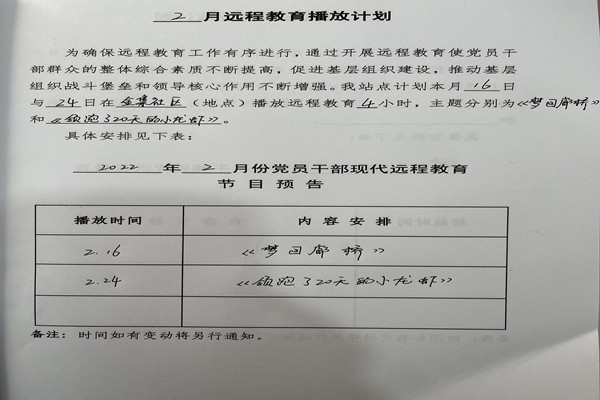 2 月远程教育播放计划
为确保远程教育工作有序进行，通过开展远程教育使党员干
部群众的整体综合素质不断提高，促进基层组织建设，推动基层
组织战斗堡垒和领导核心作用不断增强。我站点计划本月 16 日
与 24 日在 金集社区（地点）播放远程教育 4 小时，主题分别为《梦回廊桥》
和《领跑了20天的小龙虾》。
具体安排见下表：
2022 年 2 月份党员干部现代远程教育
节目预告
播放时间 内容安排
2.16 《梦回廊桥》
2.24 《领跑了20天的小龙虾》
备注：时间如有变动将另行通知。